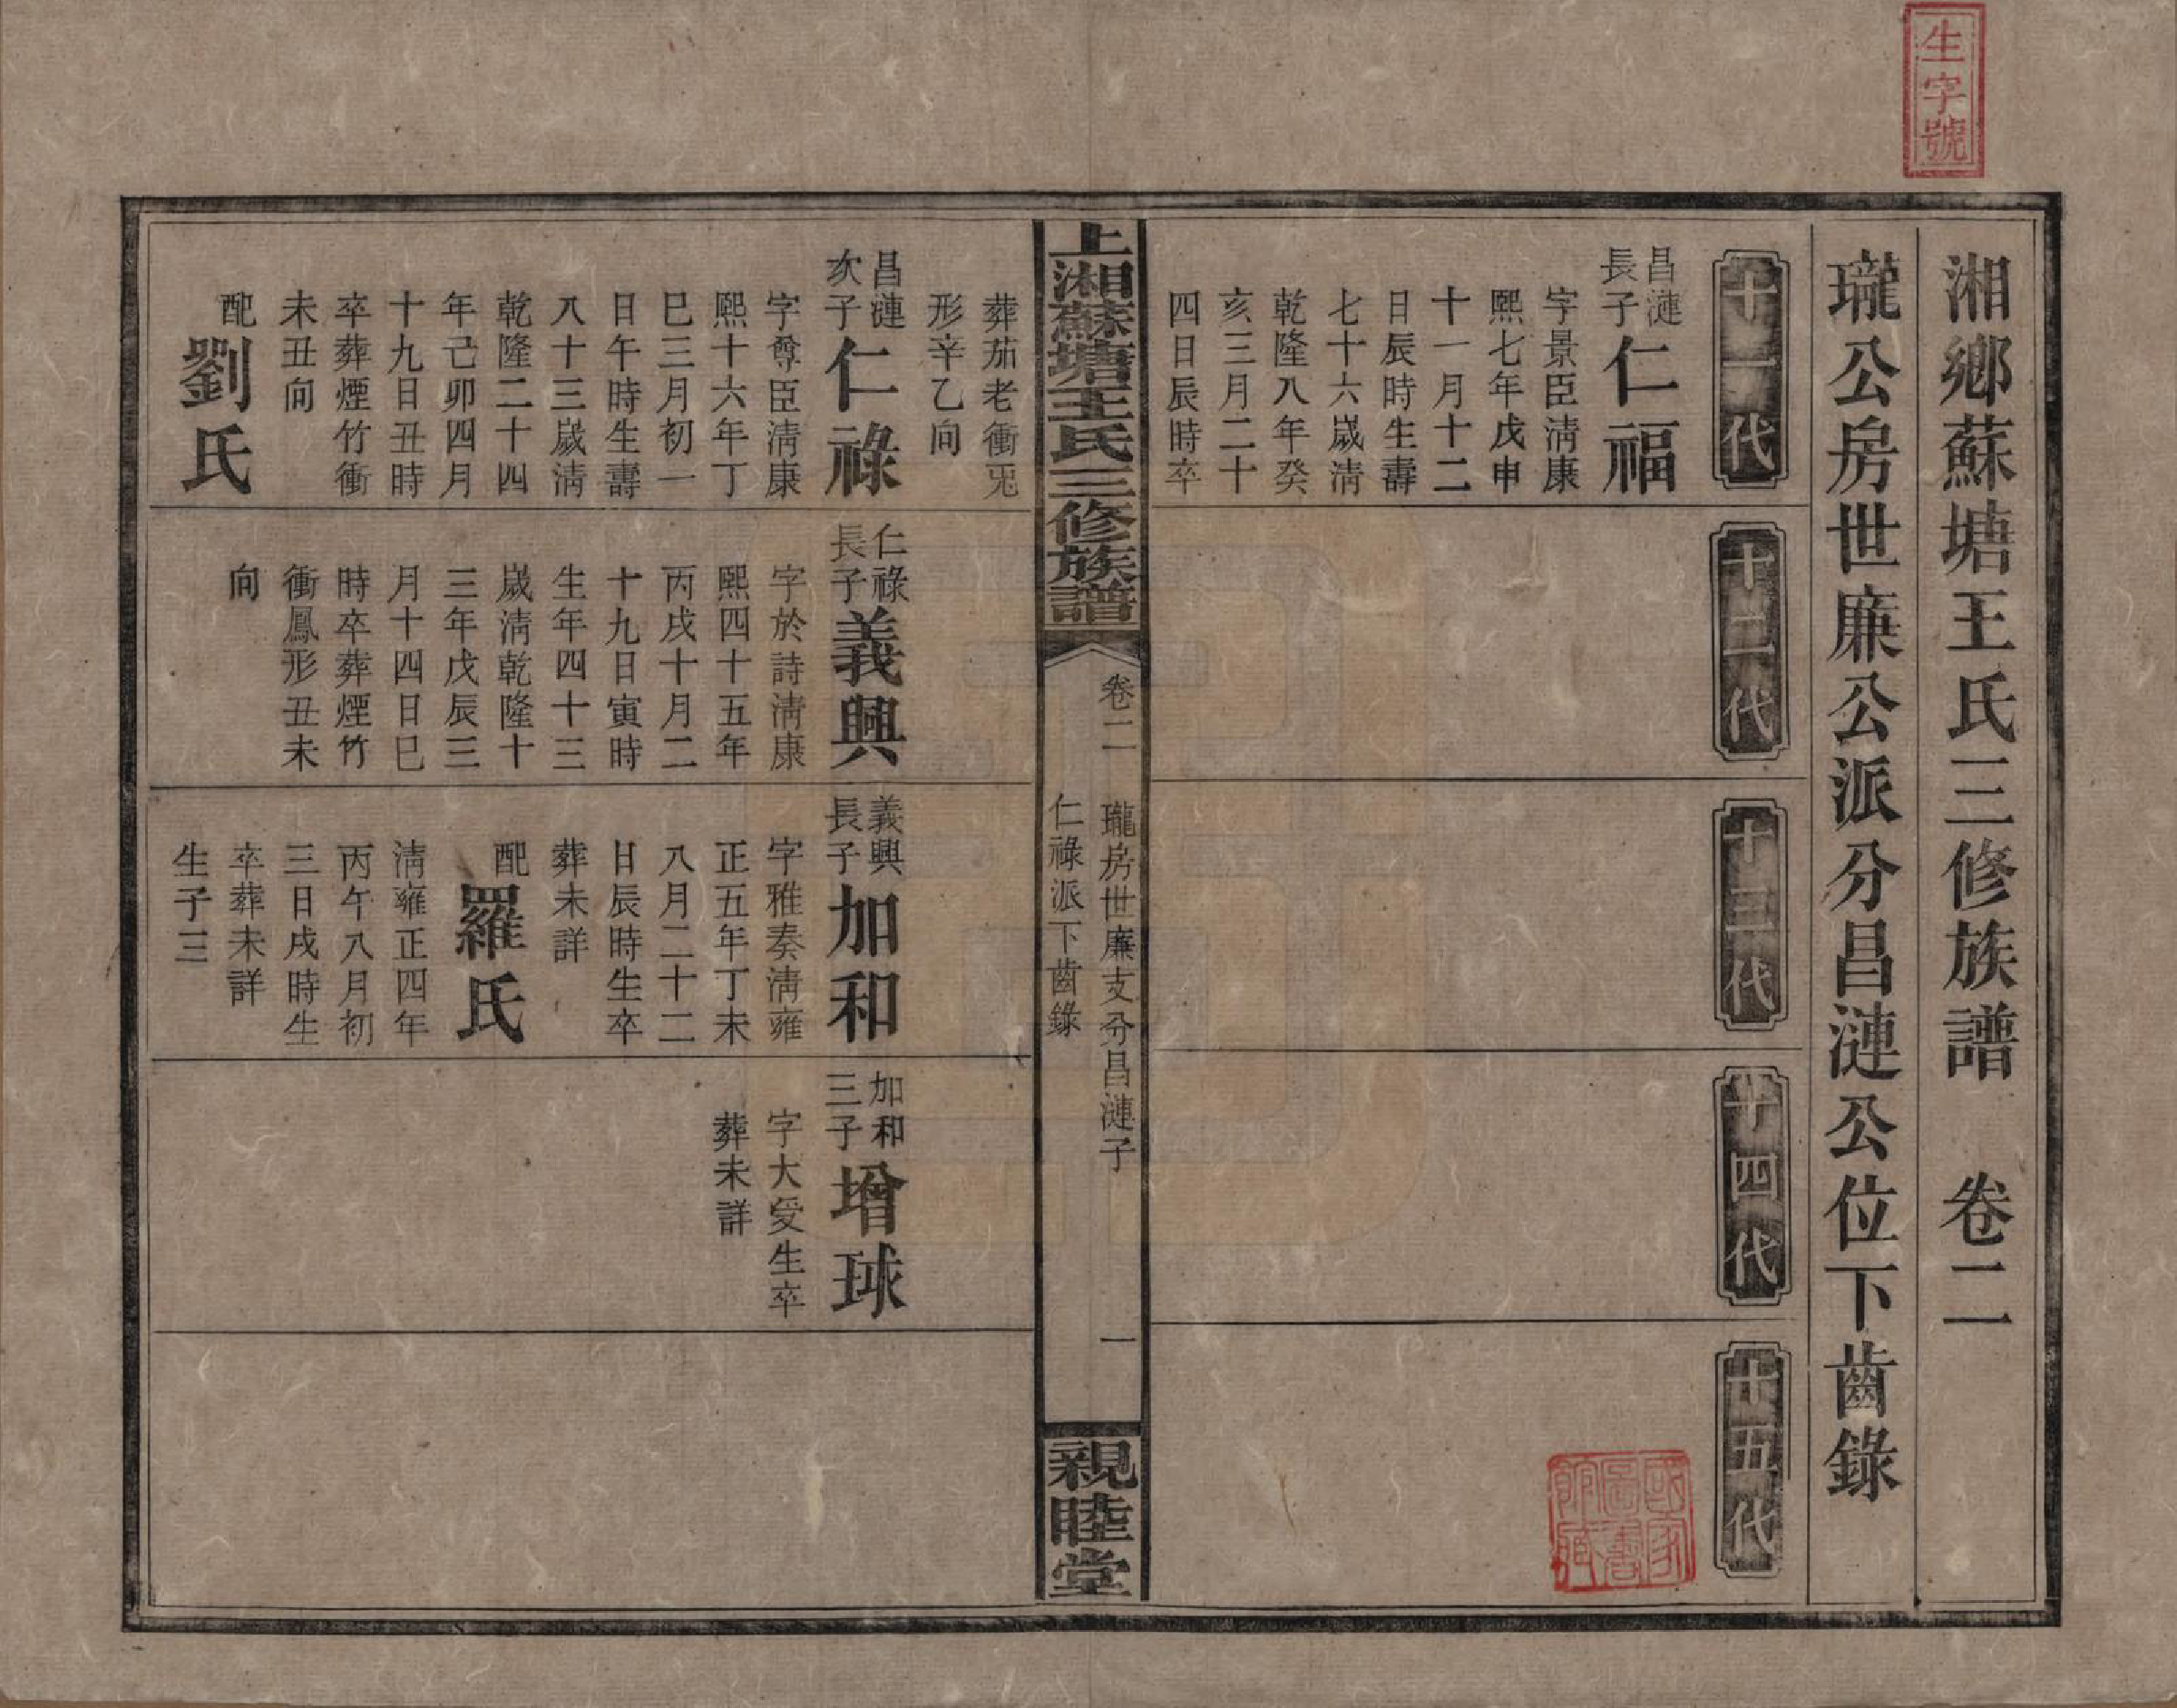 生字號
湘鄉蘇塘王氏三修族譜 卷二
瓏公房世廉公派分昌漣公位下齒錄
十一代
十二代
十三代
十四代
十五代
昌漣
長子
仁福
字景臣清康
熙七年戊申
十一月十二
日辰時生壽
七十六歲清
乾隆八年癸
亥三月二十
四日辰時卒
國家
圖書
館藏
上湘蘇塘王氏三修族譜
卷二 瓏房世廉支分昌漣子 一
仁祿派下齒錄
親睦堂
葬茄老衝兎
形辛乙向
昌漣
次子
仁祿
字尊臣清康
熙十六年丁
巳三月初一
日午時生壽
八十三歲清
乾隆二十四
年己卯四月
十九日丑時
卒葬煙竹衝
未丑向
配
劉氏
仁祿
長子
義興
字於詩清康
熙四十五年
丙戌十月二
十九日寅時
生年四十三
歲清乾隆十
三年戊辰三
月十四日巳
時卒葬煙竹
衝鳳形丑未
向
義興
長子
加和
字雅奏清雍
正五年丁未
八月二十二
日辰時生卒
葬未詳
配
羅氏
清雍正四年
丙午八月初
三日戌時生
卒葬未詳
生子三
加和
三子
增球
字大受生卒
葬未詳